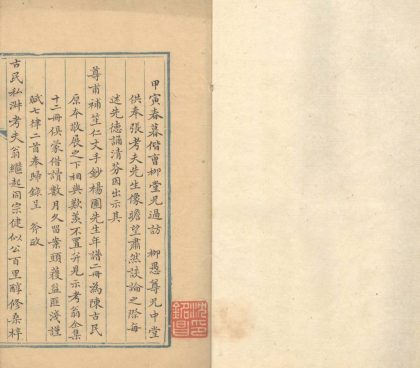 甲寅春暮偕曹柳堂兄過訪 柳愚尊兄中堂
供奉張考夫先生像瞻望肅然談論之際每
述先德誦清芬因出示其
尊甫補笙仁丈手鈔楊園先生年譜二冊為陳古民
原本敬展之下相與歎羨不置并見示考翁全集
十二冊俟蒙借讀數月久留案頭獲益匪淺謹
賦七律二首奉歸錄呈 斧政
古民私淑考夫翁繼起同宗健似公百里醇修桑梓
沈印銘昌